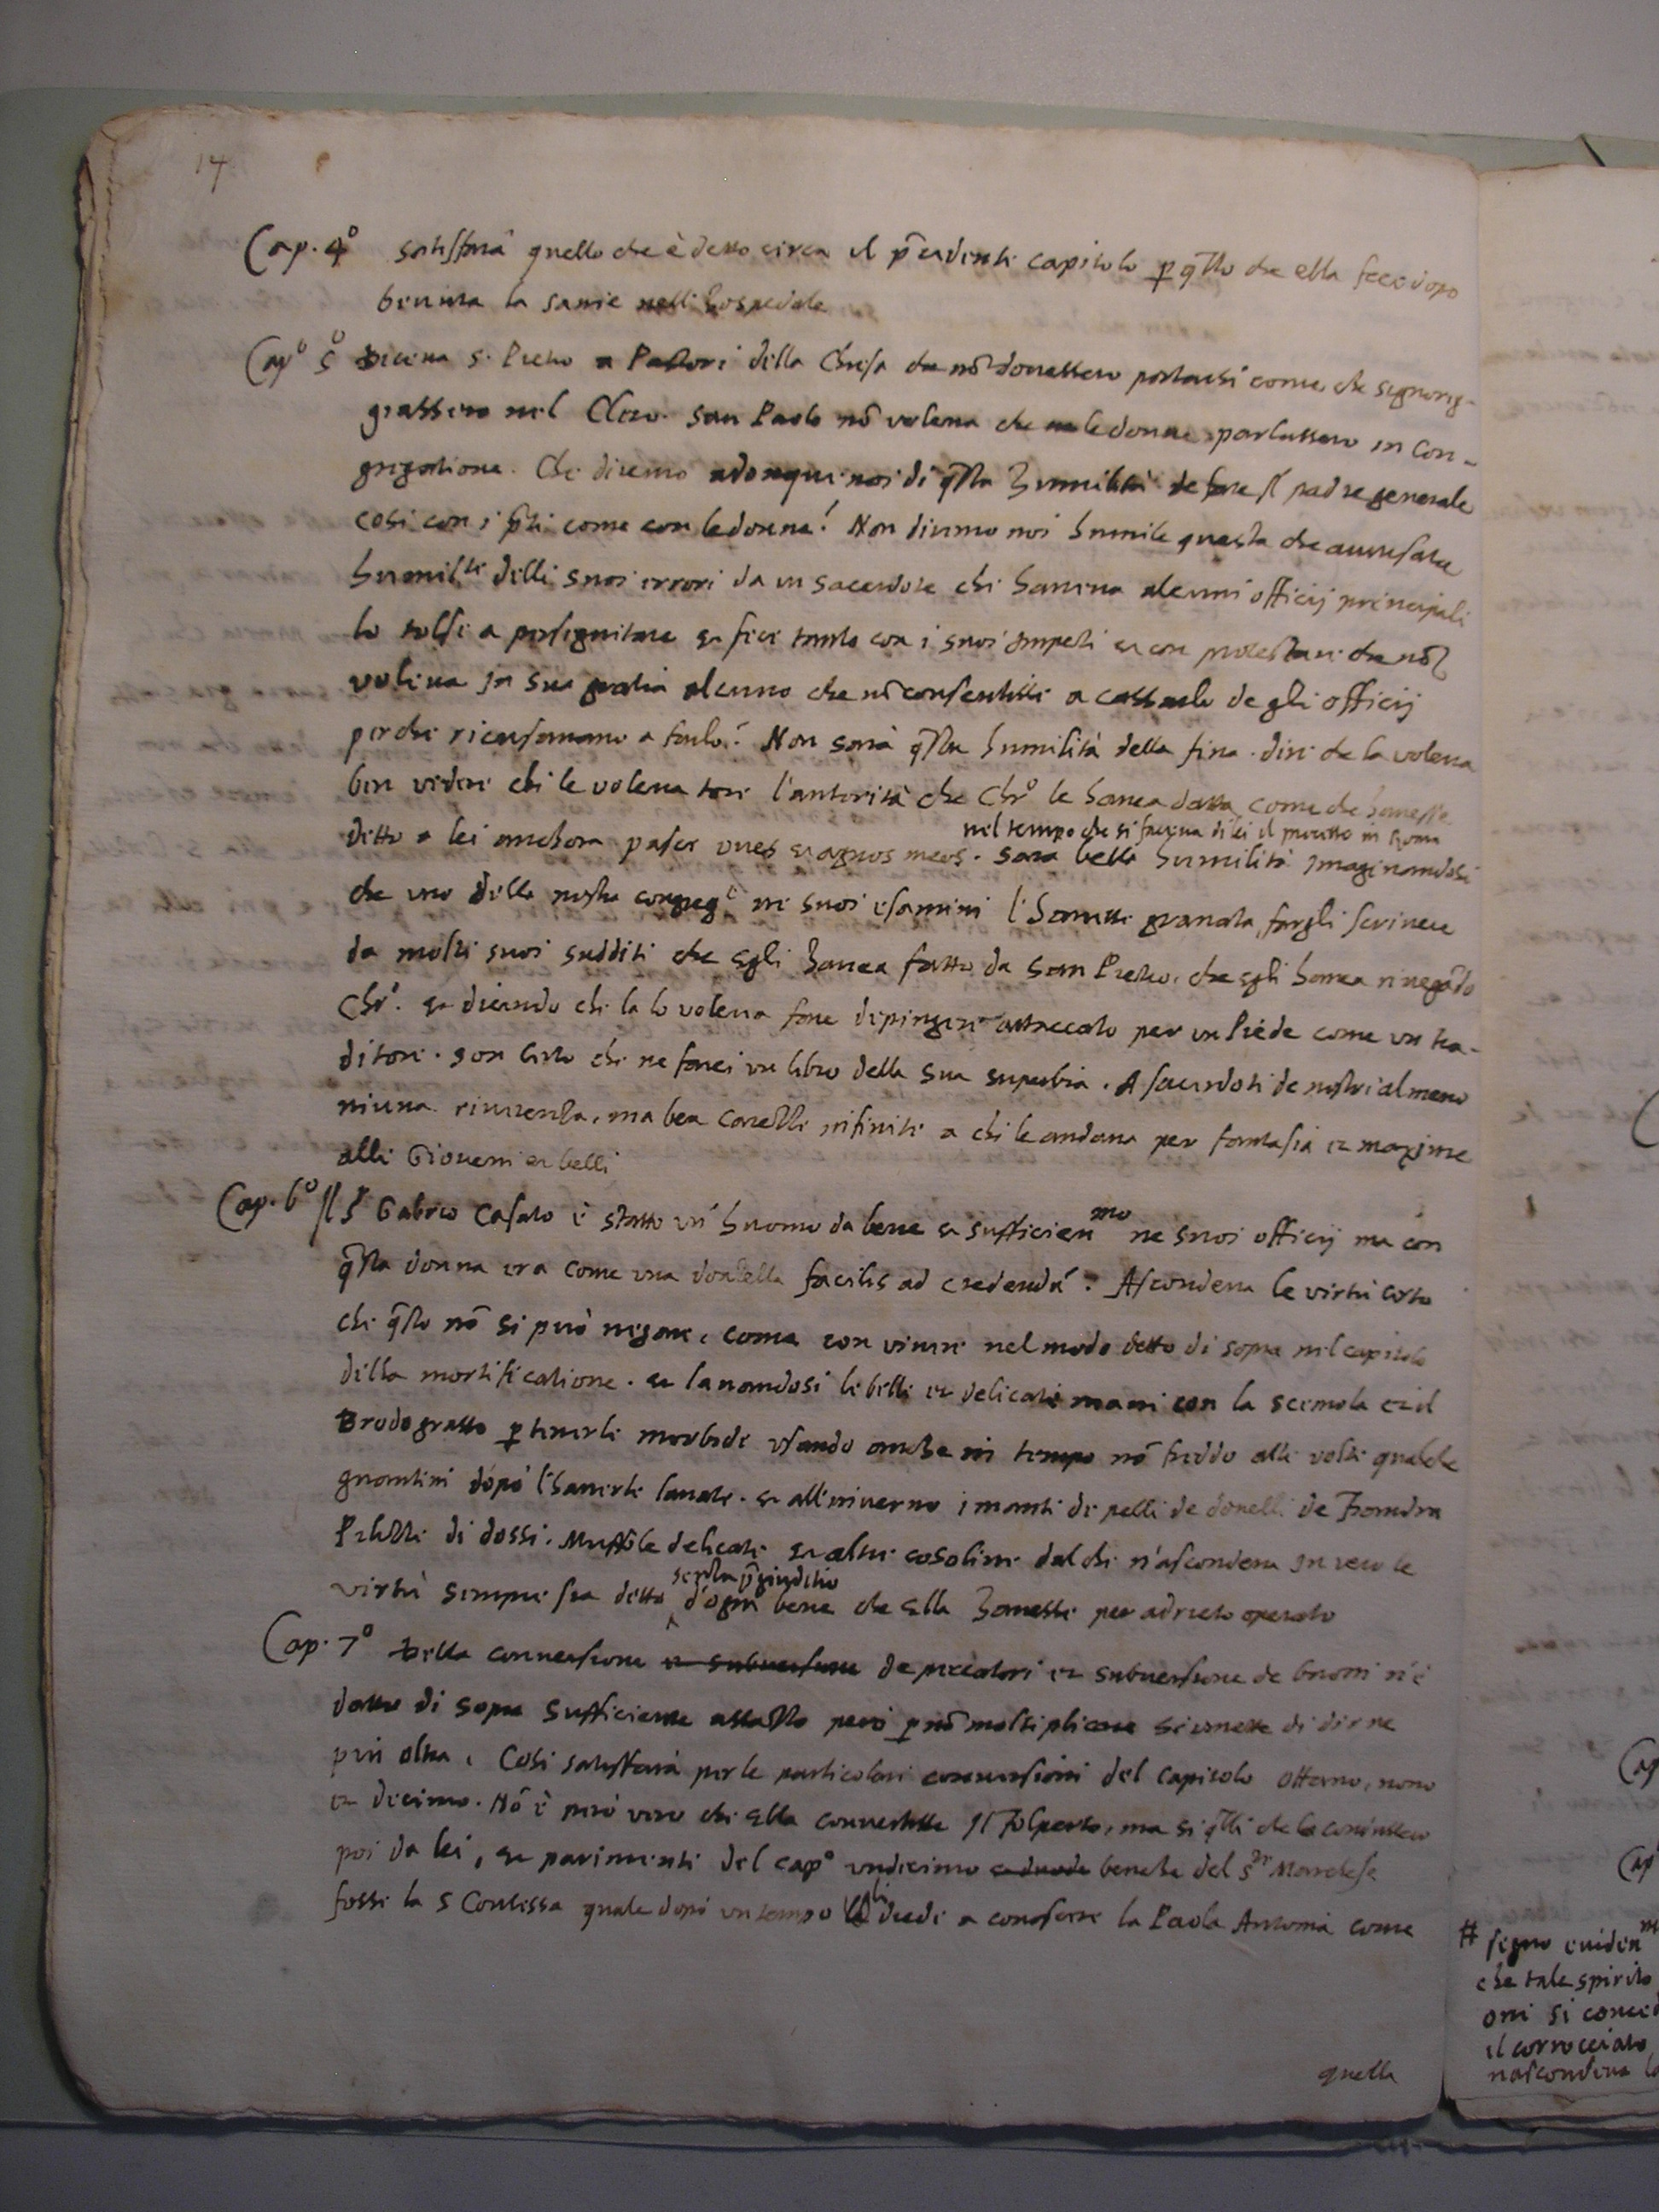 14
Cap. 4º satisfarà quello che è detto circa il p̄cedente capitolo p q̄llo che ella fece dopo
bevuta la sanie nelli hospedale
Capº 5º Diceva S. Pietro a Pastori della Chiesa che nō dovessero portarsi come che signoreg-
giassero nel Clero. San Paolo nō voleva che le donne parlassero in con-
gregatione. Che diremo adonque noi di q̄sta humilità de fare il padre generale
cosi con i p̄ti come con le donne? Non diremo noi humile questa che avvisata
humilte delli suoi errori da un sacerdote che haveva alcuni officij principali
lo tolse a perseguitare et fece tanto con i suoi impeti et con protestare che nō
voleva in sua gratia alcuno che nō consentisse a cassarlo de gli officij
perche ricusavano a farlo? Non sarà q̄sta humilità della fina. dire che la voleva
ben vedere chi le voleva torre l'autorità che Chrº le havea data, come che havesse
nel tempo che si faceva di lei il processo in Roma
detto a lei anchora pasce oves et agnos meos. Sara bella humilità imaginandosi
che uno della nostra congregᵉ ne suoi esamini l'havesse gravata, fargli scrivere
da molti suoi sudditi che egli havea fatto da San Pietro, che egli havea rinegādo
Chrº. et dicendo che la lo voleva fare depingere attaccato per un piede come un tra-
ditore. son certo che ne farei un libro della sua superbia. A sacerdoti de nostri almeno
niuna riverenza, ma ben carezze infinite a chi le andava per fantasia et maxime
alli Gioveni et belli
Cap. 6º Il S Gabrio Casato è stato un' huomo da bene et sufficienᵐᵒ ne suoi officij ma con
q̄sta donna era come una donzella facilis ad credendū. Ascondeva le virtù certo
che q̄sto nō si può negare, come con vivere nel modo detto di sopra nel capitolo
della mortificatione. et lavandosi le belle et delicate mani con la semola et il
Brodo grasso p tenerle morbide usando anche in tempo nō freddo alle volte qualche
guantini dopò l'haverle lavate. et all'inverno i manti di pelli de donelli de Fiandra
Pelizze di dossi. Muffole delicate et altre cosoline dal che n'ascondeva in vero le
senza p̄giuditio
virtù sempre sia detto d'ogni bene che ella havesse per adrieto operato
Cap. 7º Della conversione et subversione de peccatori et subversione de buoni n'è
detto di sopra sufficiente assatto però p nō moltiplicare si omette di dirne
più oltra, Cosi satisfarà per le particolari conversioni del capitolo ottavo, nono
et decimo. Nō è però vero che ella convertesse Il Folperto, ma si q̄lli che la
poi da lei, et parimenti del capº undicimo benche del Sʳ Marchese
fosse la S Contessa quale dopò un tempo li diede a conoscere la Paola Antonia come
quella
# segno eviden
che tale spirito
oni si conced
il corrocciato
nascondeva la